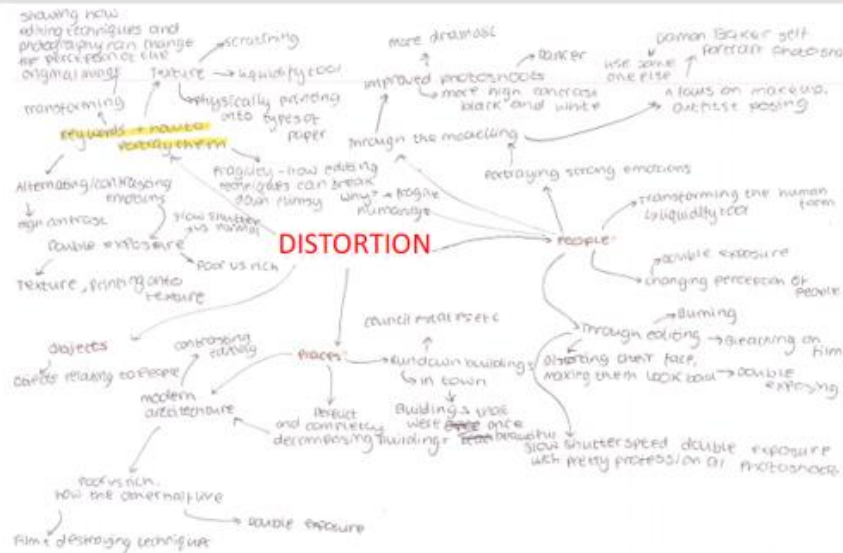 showing how
editing techniques and
photography can change
the perception of the
original image
Texture
scratching
liquidity tool
physically printing
onto types of
paper
transforming
Keywords + how to
portray them
Alternating/contrasting
emotions
high contrast
Double exposure
slow shutter
vs normal
Poor vs rich
Texture, printing onto
texture
Fragility - how editing
techniques can break
down flimsy
why? → fragile
humanity
more dramatic
improved photoshoots
Dancer
more high contrast
black and white
through the modelling
Damon Baker self
portrait photoshoot
use some
one else
A focus on makeup,
outfits + posing
Portraying strong emotions
DISTORTION
People
transforming the human
form
liquidity tool
Double exposure
changing perception of
people
Through editing
Burning
Bleaching on
film
Distorting their face,
making them look bad
Double
exposing
slow shutter speed double exposure
with pretty professional photoshoots
Objects
Objects relating to people
Places
contrasting
editing
modern
architecture
Perfect
and completely
decomposing buildings
council estates etc
Rundown buildings
in town
Buildings that
were once
beautiful
Poor vs rich.
how the other half live
Double exposure
Film + destroying techniques